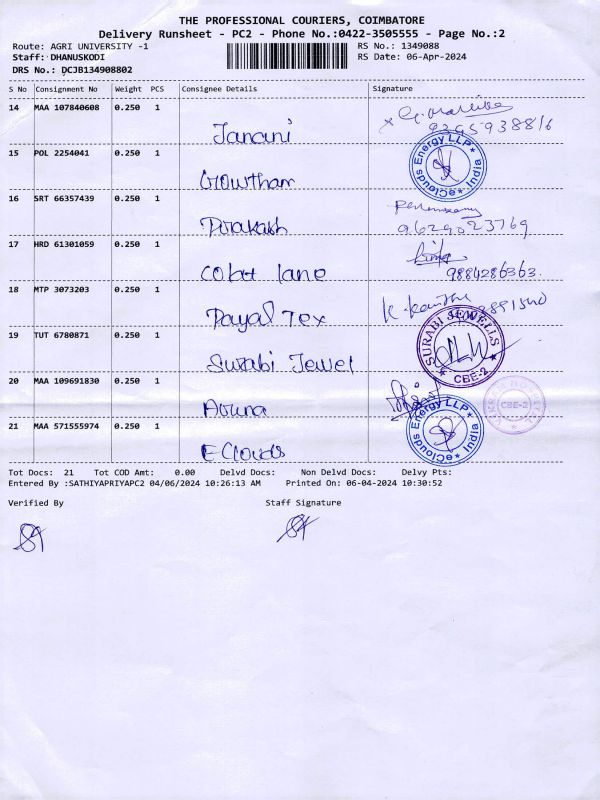 THE PROFESSIONAL COURIERS, COIMBATORE
Delivery Runsheet - PC2 - Phone No.:0422-3505555 - Page No.:2
Route: AGRI UNIVERSITY -1 RS No.: 1349088
Staff: DHANUSKODI RS Date: 06-Apr-2024
DRS No.: DCJB134908802
S No Consignment No Weight PCS Consignee Details Signature
14 MAA 107840608 0.250 1
Janani
15 POL 2254041 0.250 1
Gowtham
eClouds Energy LLP India
16 SRT 66357439 0.250 1
Prakash 9629023769
17 HRD 61301059 0.250 1
Cobt lane 9884286363.
18 MTP 3073203 0.250 1
Payal Tex
19 TUT 6780871 0.250 1
Surabi Jewel
SURABI JEWELLS CBE-2
20 MAA 109691830 0.250 1
Aruna
CBE-2
21 MAA 571555974 0.250 1
EClouds
eClouds Energy LLP India
Tot Docs: 21 Tot COD Amt: 0.00 Delvd Docs: Non Delvd Docs: Delvy Pts:
Entered By :SATHIYAPRIYAPC2 04/06/2024 10:26:13 AM Printed On: 06-04-2024 10:30:52
Verified By Staff Signature